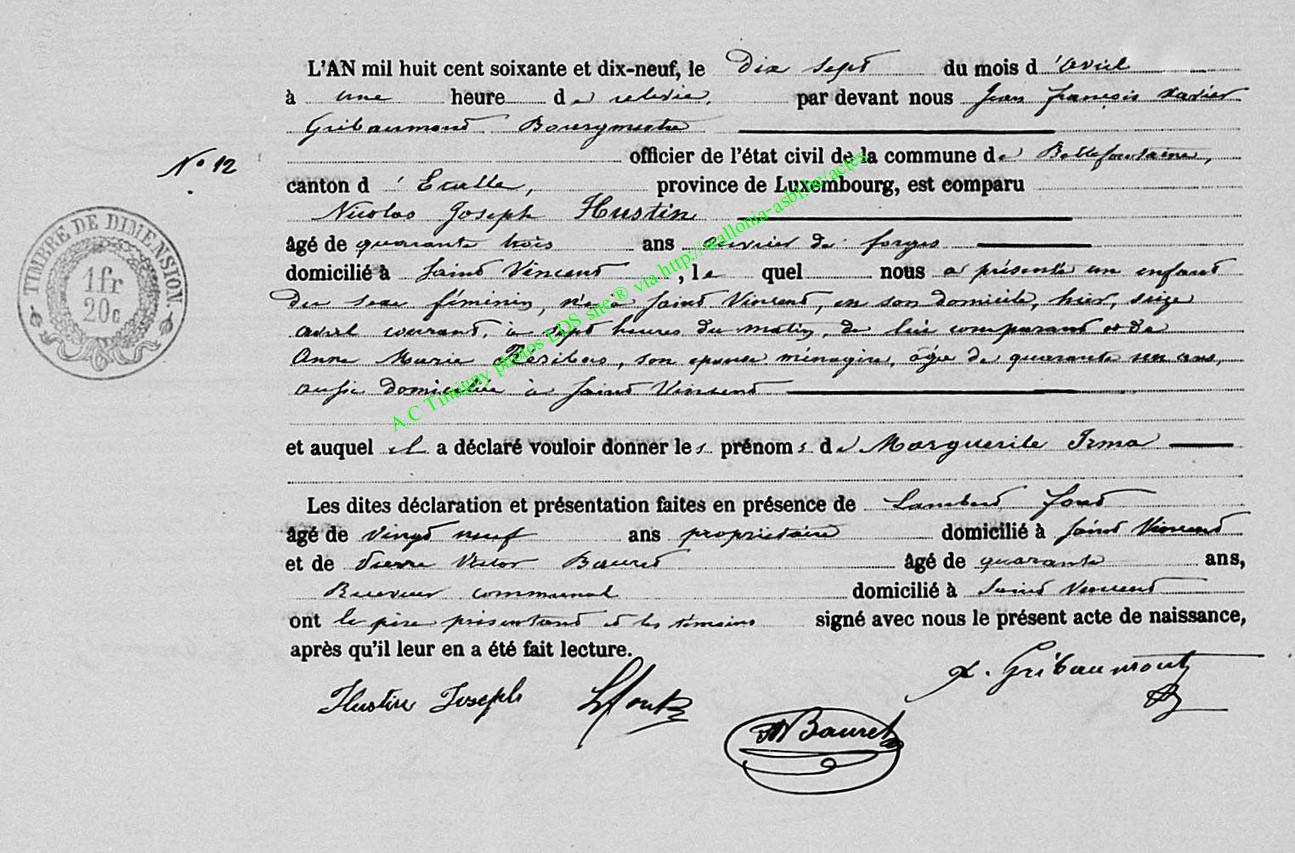 L'AN mil huit cent soixante et dix-neuf, le dix sept du mois d 'avril
à une heure de relevée, par devant nous Jean françois Xavier
Gribaumont Bourgmestre
officier de l'état civil de la commune de Bellefontaine,
N° 12
canton d 'Etalle, province de Luxembourg, est comparu
Nicolas Joseph Hustin
âgé de quarante trois ans ouvrier de forges
domicilié à Saint Vincent, le quel nous a présenté un enfant
du sexe féminin, né à Saint Vincent, en son domicile, hier, seize
avril courant, à sept heures du matin, de lui comparant et de
Anne Marie, son épouse ménagère, âgée de quarante un ans,
aussi domiciliée à Saint Vincent
et auquel il a déclaré vouloir donner les prénoms de Marguerite Irma
Les dites déclaration et présentation faites en présence de Lambert
âgé de vingt neuf ans propriétaire domicilié à Saint Vincent
et de Pierre Victor Bauret âgé de quarante ans,
Receveur communal domicilié à Saint Vincent
ont le père présentant et les témoins signé avec nous le présent acte de naissance,
après qu'il leur en a été fait lecture.
Hustin Joseph
X. Gribaumont
Bauret
TIMBRE DE DIMENSION
1 fr
20 c
A.C Tintigny photos LDS site ® via http://wallonia-asbl.be/actes